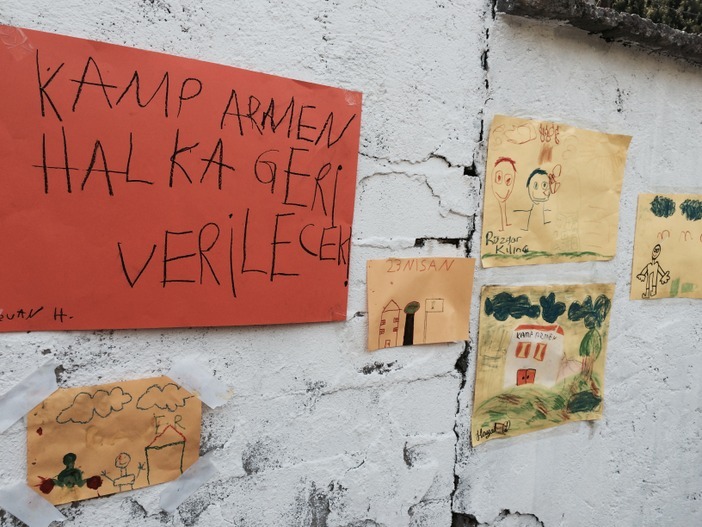 KAMP ARMEN
HALKA GERİ
VERİLECEK!
H.
23 NİSAN
Rüzgar
Kılınç
KAMP ARMEN